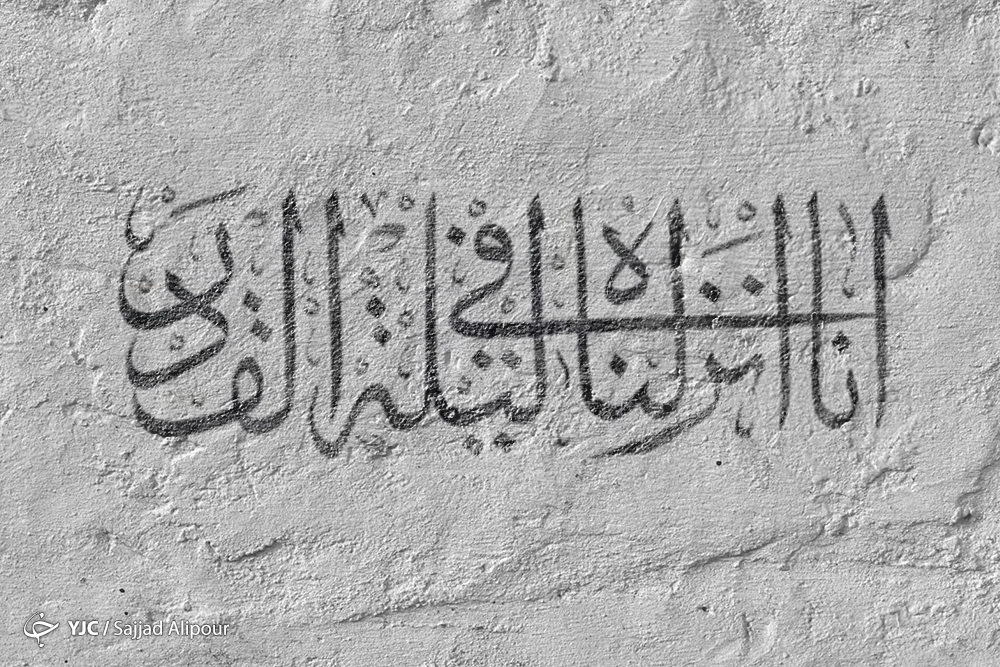 انا انزلناه في ليلة القدر
YJC / Sajjad Alipour